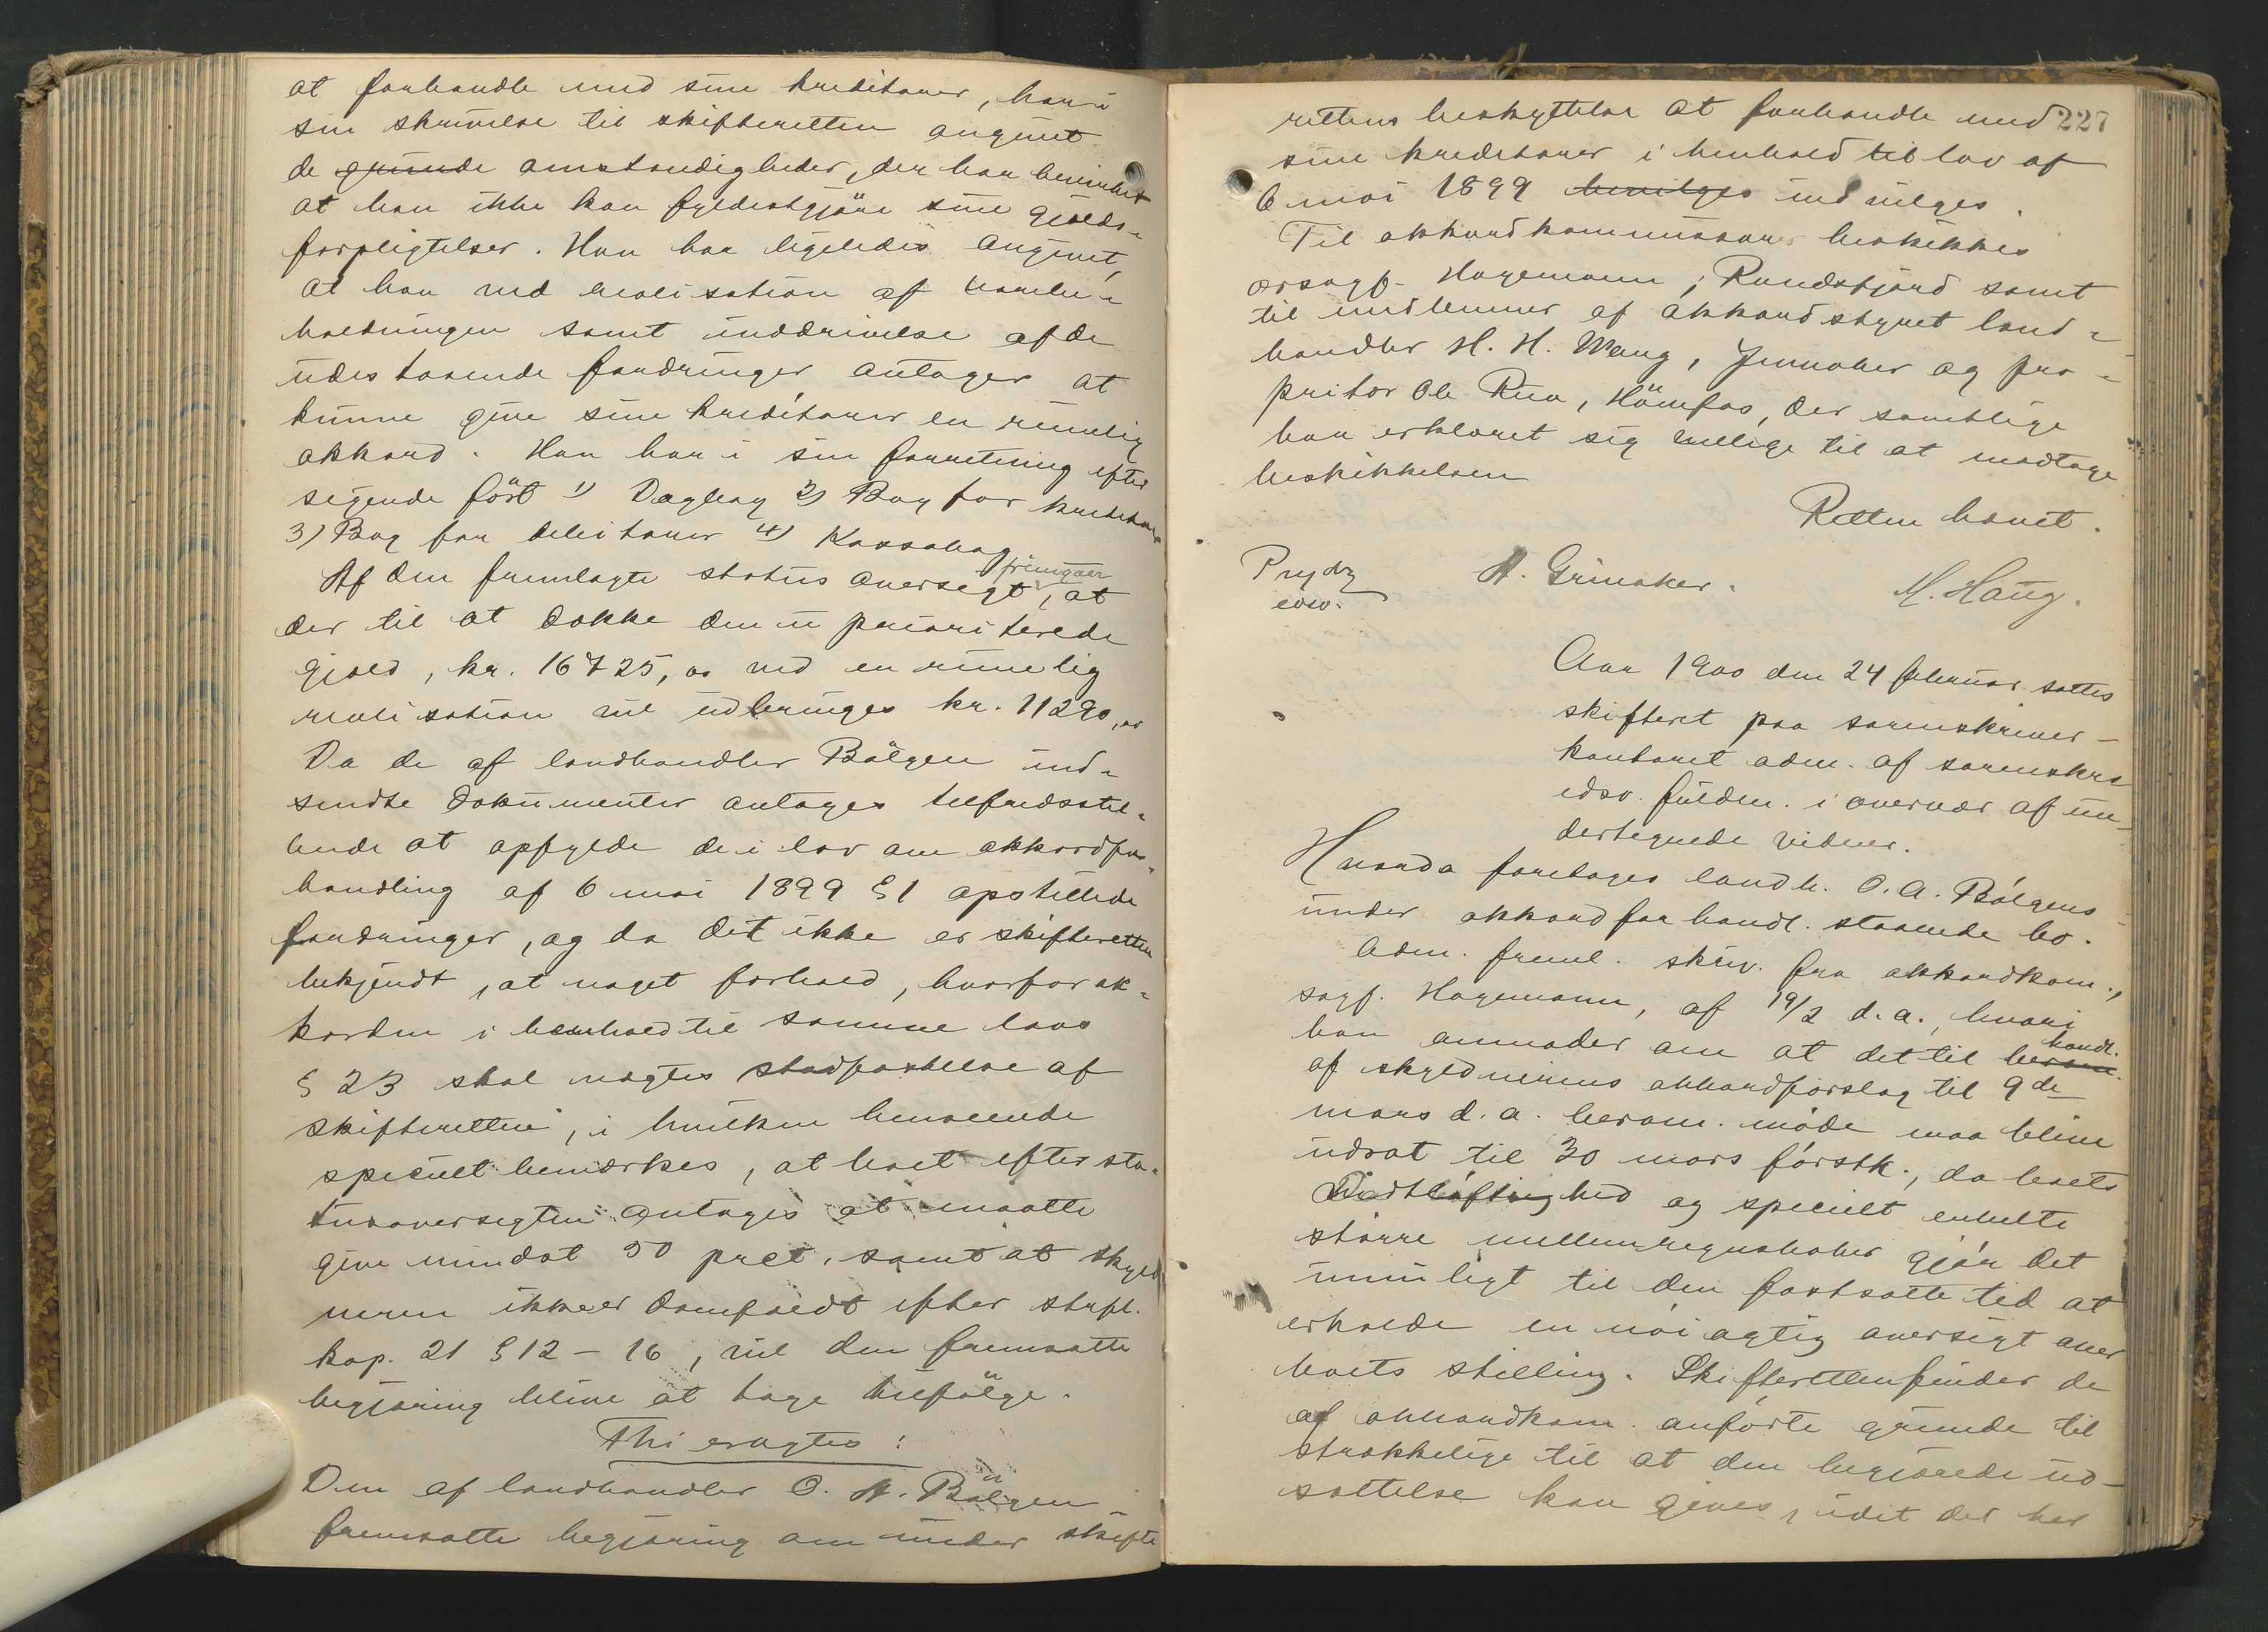 at forhandle med sine kreditorer, har i
sin skrivelse til skifteretten angivet
de grunde omstændigheder, der har bevirket
at han ikke kan fyldestgjöre sine gjælds-
forpligtelser. Han har ligeledes angivet,
at han ved realisation af varebe-
holdningen samt inddrivelse af de
udestaaende fordringer antager at
kunne give sine kreditorer en rimelig
akkord. Han har i sin forretning efter
sigende fört 1) Dagbog 2) Bog for kreditorer
3) Bog for debitorer 4) Kassabog
Af den fremlagte status oversigt fremgaar, at
der til at dække den u prioriterede
gjæld, kr. 16725,00 ved en rimelig
realisation vil udbringes kr. 11290,00
Da de af landhandler Bölgen ind-
sendte dokumenter antages tilfredsstil-
lende at opfylde de i lov om akkordfor-
handling af 6 mai 1899 § 1 opstillede
fordringer, og da det ikke er skifteretten
bekjendt, at noget forhold, hvorfor ak-
korden i henhold til samme lovs
§ 23 skal nægtes stadfæstelse af
skifteretten, i hvilken henseende
specielt bemærkes, at boet efter sta-
tusoversigten antages at maatte
give mindst 50 prct. samt at skyld
neren ikke er domfældt efter strfl.
kap. 21 § 12 - 16, vil den fremsatte
begjæring blive at tage tilfölge.
Thi eragtes:
Den af landhandler O. A. Bölgen
fremsatte begjæring om under skifte
227
rettens beskyttelse at forhandle med
sine kreditorer i henhold til lov af
6 mai 1899 bevilges indvilges.
Til akkordkommissær beskikkes
orsagf. Hagemann, Randsfjord samt
til medlemmer af akkordstyret land-
handler H. H. Wang, Jevnaker og pro-
pritær Ole Rua, Hönefos, der samtlige
har erklæret sig villige til at modtage
beskikkelsen
Retten hævet.
Prydz
edsv.
A. Grinaker.
M. Haug.
Aar 1900 den 24 februar sattes
skifteret paa sorenskriver-
kontoret adm. af sorenskrs
edsv. fuldm. i overvær af un-
dertegnede vidner.
Hvorda foretages landh. O. A. Bölgens
under akkordforhandl. staaende bo.
Adm. freml. skriv. fra akkordkom.,
sagf. Hagemann, af 19/2 d. a., hvori
han anmoder om at det til beram. handl.
af skyldnerens akkordforslag til 9de
mars d. a. beram. möde maa blive
udsat til 30 mars förstk., da boets
Vidtlöftighed og specielt enkelte
större mellemregnskaber gjör det
umuligt til den fastsatte tid at
erholde en nöiagtig oversigt over
boets stilling. Skifteretten finder de
af akkordkom. anförte grunde til
strækkelige til at den begjærede ud-
sættelse kan gives, idet der har